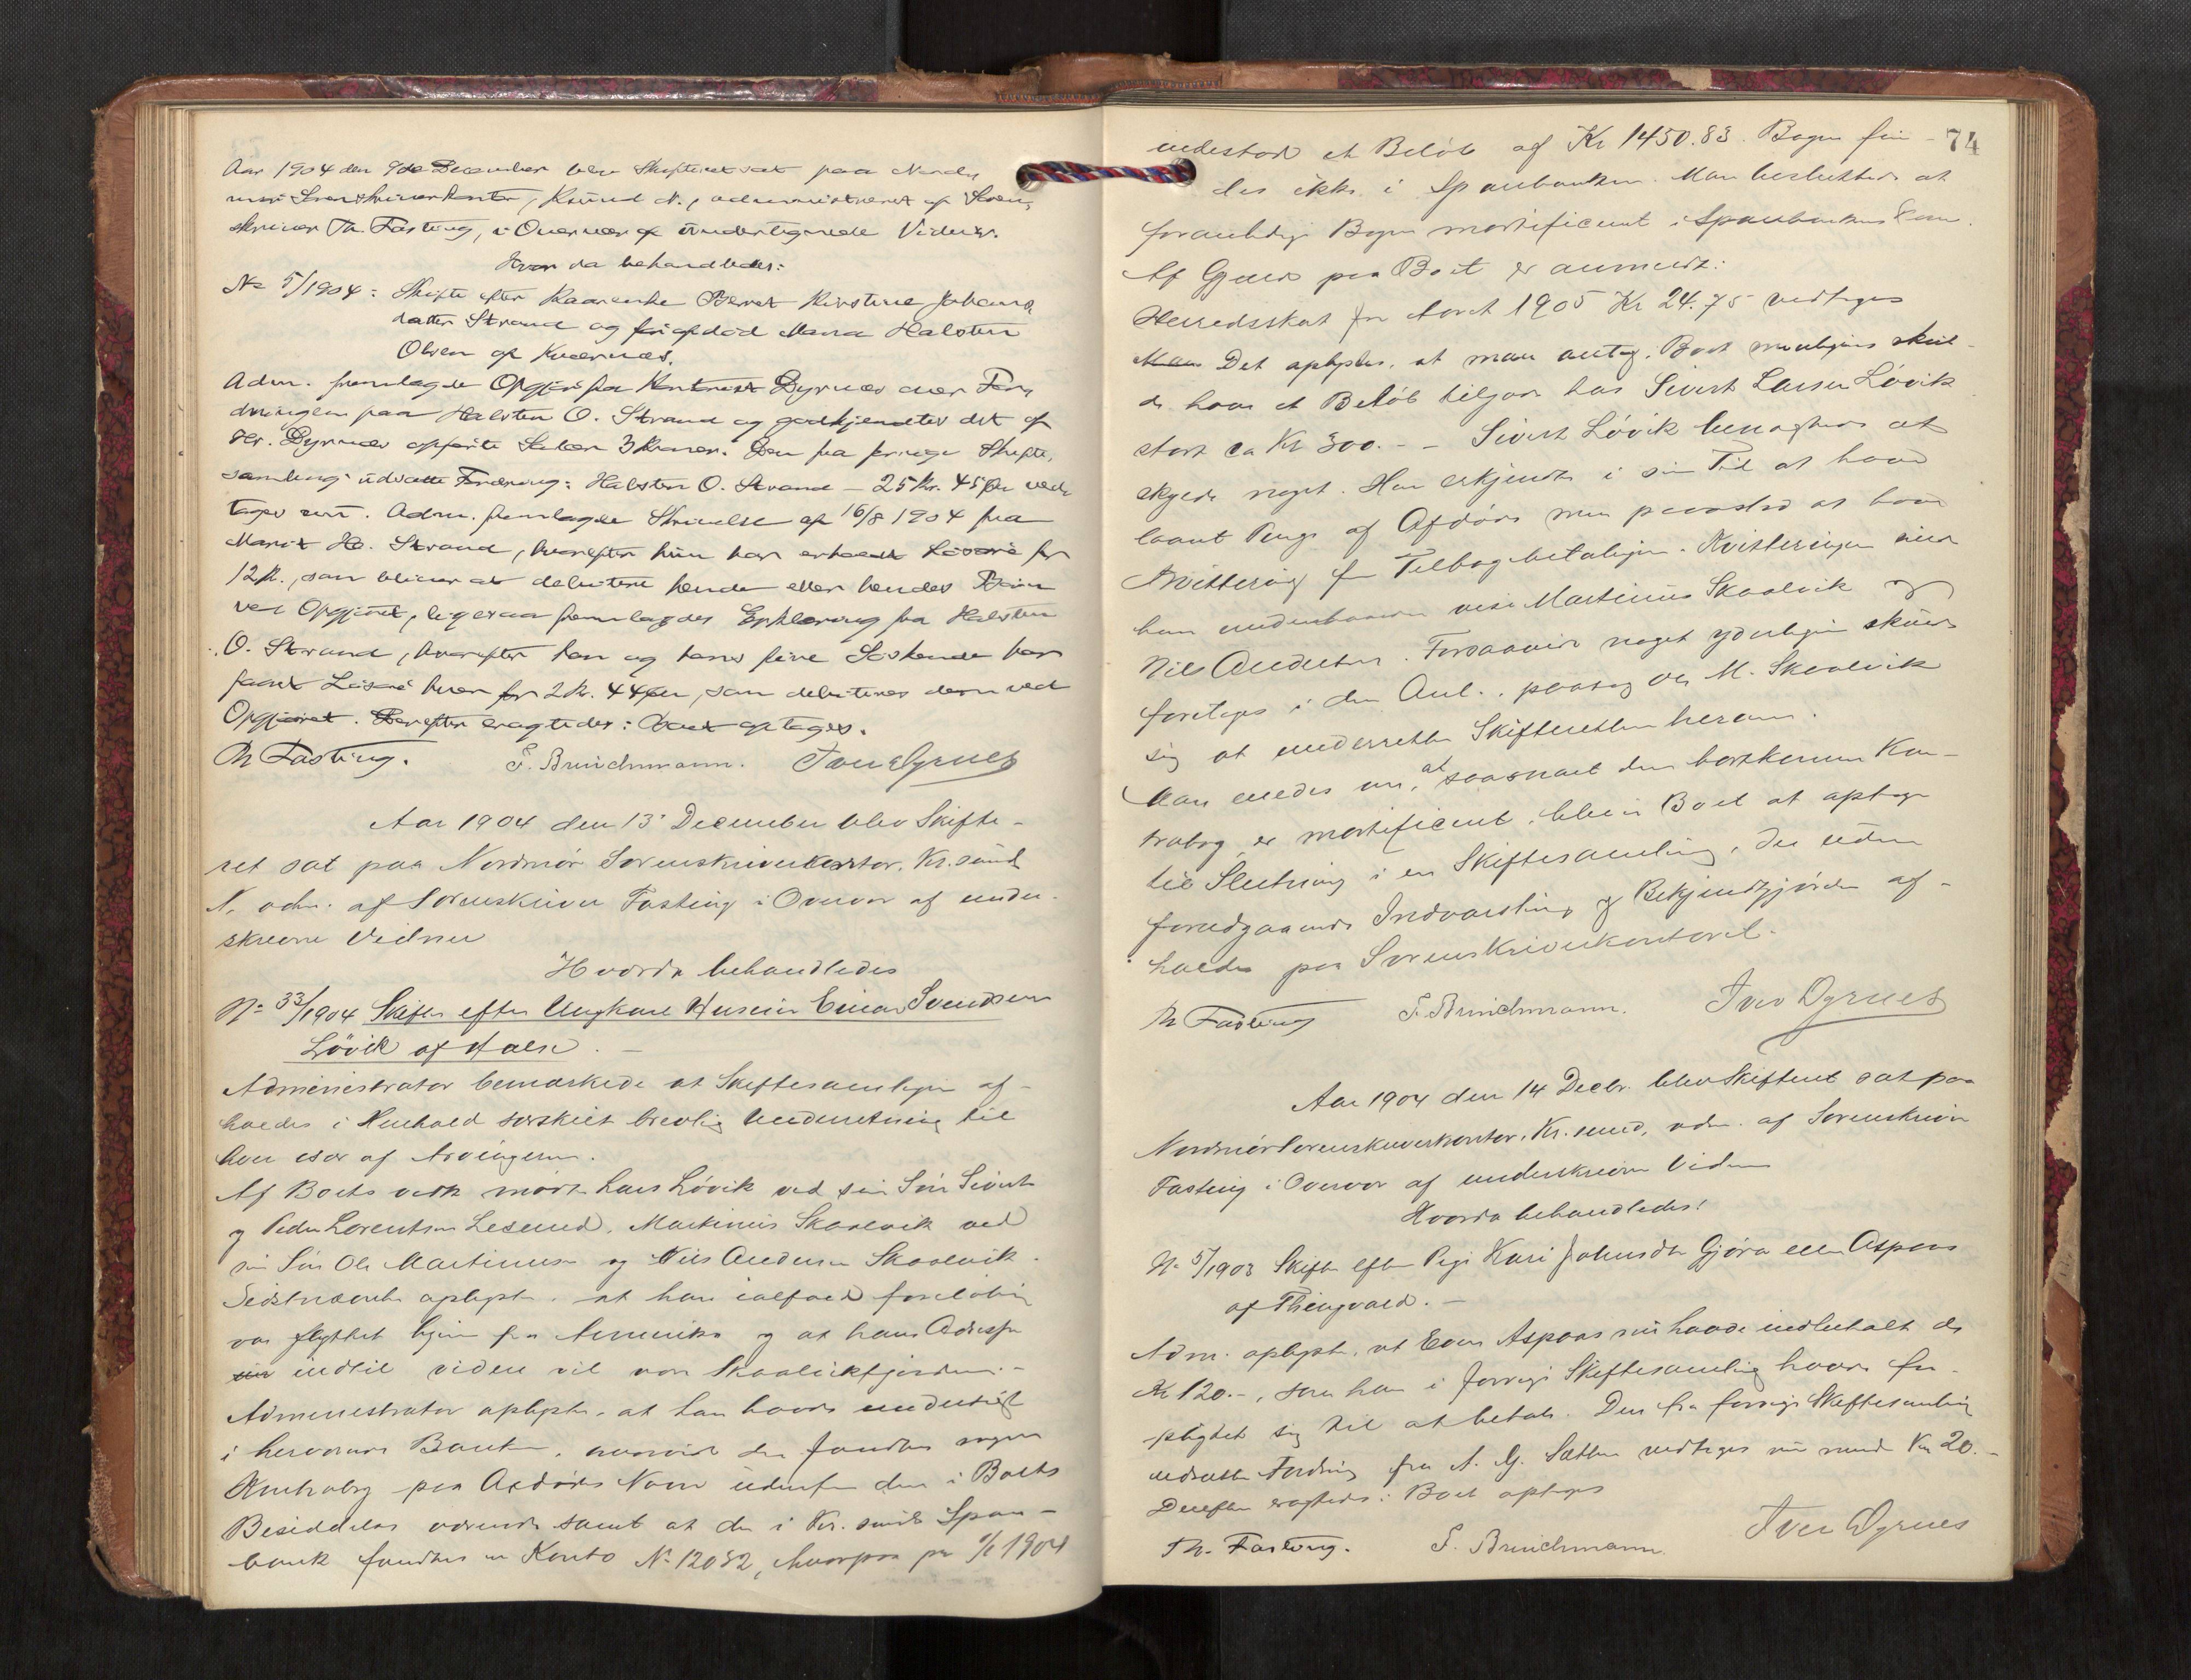 Aar 1904 den 9de December blev Skifteret sat paa Nord-
møri Sorenskriverkontor, Kr.sund N., administreret af Soren-
skriver Th. Fasting, i Overvær af undertegnede Vidner.
Hvor da behandledes:
No 5/1904: Skifte efter Kaarenke Beret Kirstine Johans-
datter Strand og før afdød Mand Halsten
Olsen af Kvernæs.
Adm. fremlagde Opgjør fra Dyrnes over For-
dringen paa Halsten O. Strand og godkjendtes det af
Hr. Dyrnes opførte Salær 3 Kroner. Den fra forrige Skifte-
samling udsatte Fordring: Halsten O. Strand — 25 Kr. 45 Øre ved-
toges nu. Adm. fremlagde Skrivelse af 16/8 1904 fra
Marit H. Strand, hvorefter hun har erholdt Løsøre for
12 Kr., som bliver at debitere hende eller hendes Børn
ved Opgjøret, ligesaa fremlagdes Erklæring fra Halsten
O. Strand, hvorefter han og hans fire Søskende har
faaet Løsøre hver for 2 Kr. 44 Øre, som debiteres dem ved
Opgjøret. Derefter eragtedes: Boet optages.
Th Fasting. F. Brinchmann. Iver Dyrnes
Aar 1904 den 13' December blev Skifte-
ret sat paa Nordmør Sorenskriverkontor, Kr.sund
N, adm. af Sorenskriver Fasting i Overvær af under-
skrevne Vidner
Hvorda behandledes
No 33/1904 Skifte efter Ungkarl Einar Svendsen
Løvik af Halse. —
Administrator bemærkede at Skiftesamlingen af-
holdes i Henhold særskilt brevlig Underretning til
hver især af Arvingerne.
Af Boets vedk mødte Lars Løvik ved sin Søn Sivert
og Peder Lorentsen Lesund, Martinus Skaalvik ved
sin Søn Ole Martinusen og Nils Andersen Skaalvik.
Sidstnævnte oplyste, at han ialfald foreløbig
var flyttet hjem fra Amerika og at hans Adresse
indtil videre vil være Skaalvikfjorden. -
Administrator oplyste, at han havde undersøgt
i herværende Banker, hvorvidt der fandtes nogen
Kontrabog paa Afdødes Navn udenfor den i Boets
Besiddelse værende samt at der i Kr. sunds Spare-
bank fandtes en Konto No 12032, hvorpaa pr 1/1 1904
74
indestod et Beløb af Kr 1450.83. Bogen fin-
des ikke i Sparebanken. Man besluttede at
foranledige Bogen mortificeret i Sparebankens
Af Gjæld paa Boet er anmeldt:
Herredsskat for Aaret 1905 Kr 24.75 vedtages
Det oplystes, at man antog, Boet muligens skul-
de have et Beløb tilgode hos Sivert Larsen Løvik
stort ca Kr 300. - - Sivert Løvik benægtede at
skylde noget. Han erkjendte i sin Tid at have
laant Penge af Afdøde men paastod at have
Kvittering for Tilbagebetalingen. Kvitteringen vil
han vise Martinus Skaalvik og
Nils Andersen. Forsaavidt noget yderligere skulde
foretages i den Anl., paatog Ole M. Skaalvik
sig at underrette Skifteretten herom.
Man enedes om, at saasnart den bortkomne Kon-
trabog er mortificeret, bliver Boet at optage
til Slutning i en Skiftesamling, der uden
foredgaaende Indvarsling og Bekjendtgjørelse af-
holdes paa Sorenskriverkontoret.
Th Fasting F. Brinchmann. Iver Dyrnes
Aar 1904 den 14 Decbr. blev Skifteret sat paa
Nordmør Sorenskriverkontor, Kr.sund, adm. af Sorenskriver
Fasting i Overvær af underskrevne Vidner
Hvorda behandledes:
No 5/1903 Skifte efter Pige Kari Johnsdtr Gjøra eller Aspaas
af Thingvold. —
Adm. oplyste, at Even Aspaas nu havde indbetalt de
Kr 120.-, som han i forrige Skiftesamling havde for-
pligtet sig til at betale. Den fra forrige Skiftesamling
udsatte Fordring fra A. G. Sætter vedtages nu med Kr 20.-
Derefter eragtedes: Boet optages
Th. Fasting. F. Brinchmann. Iver Dyrnes